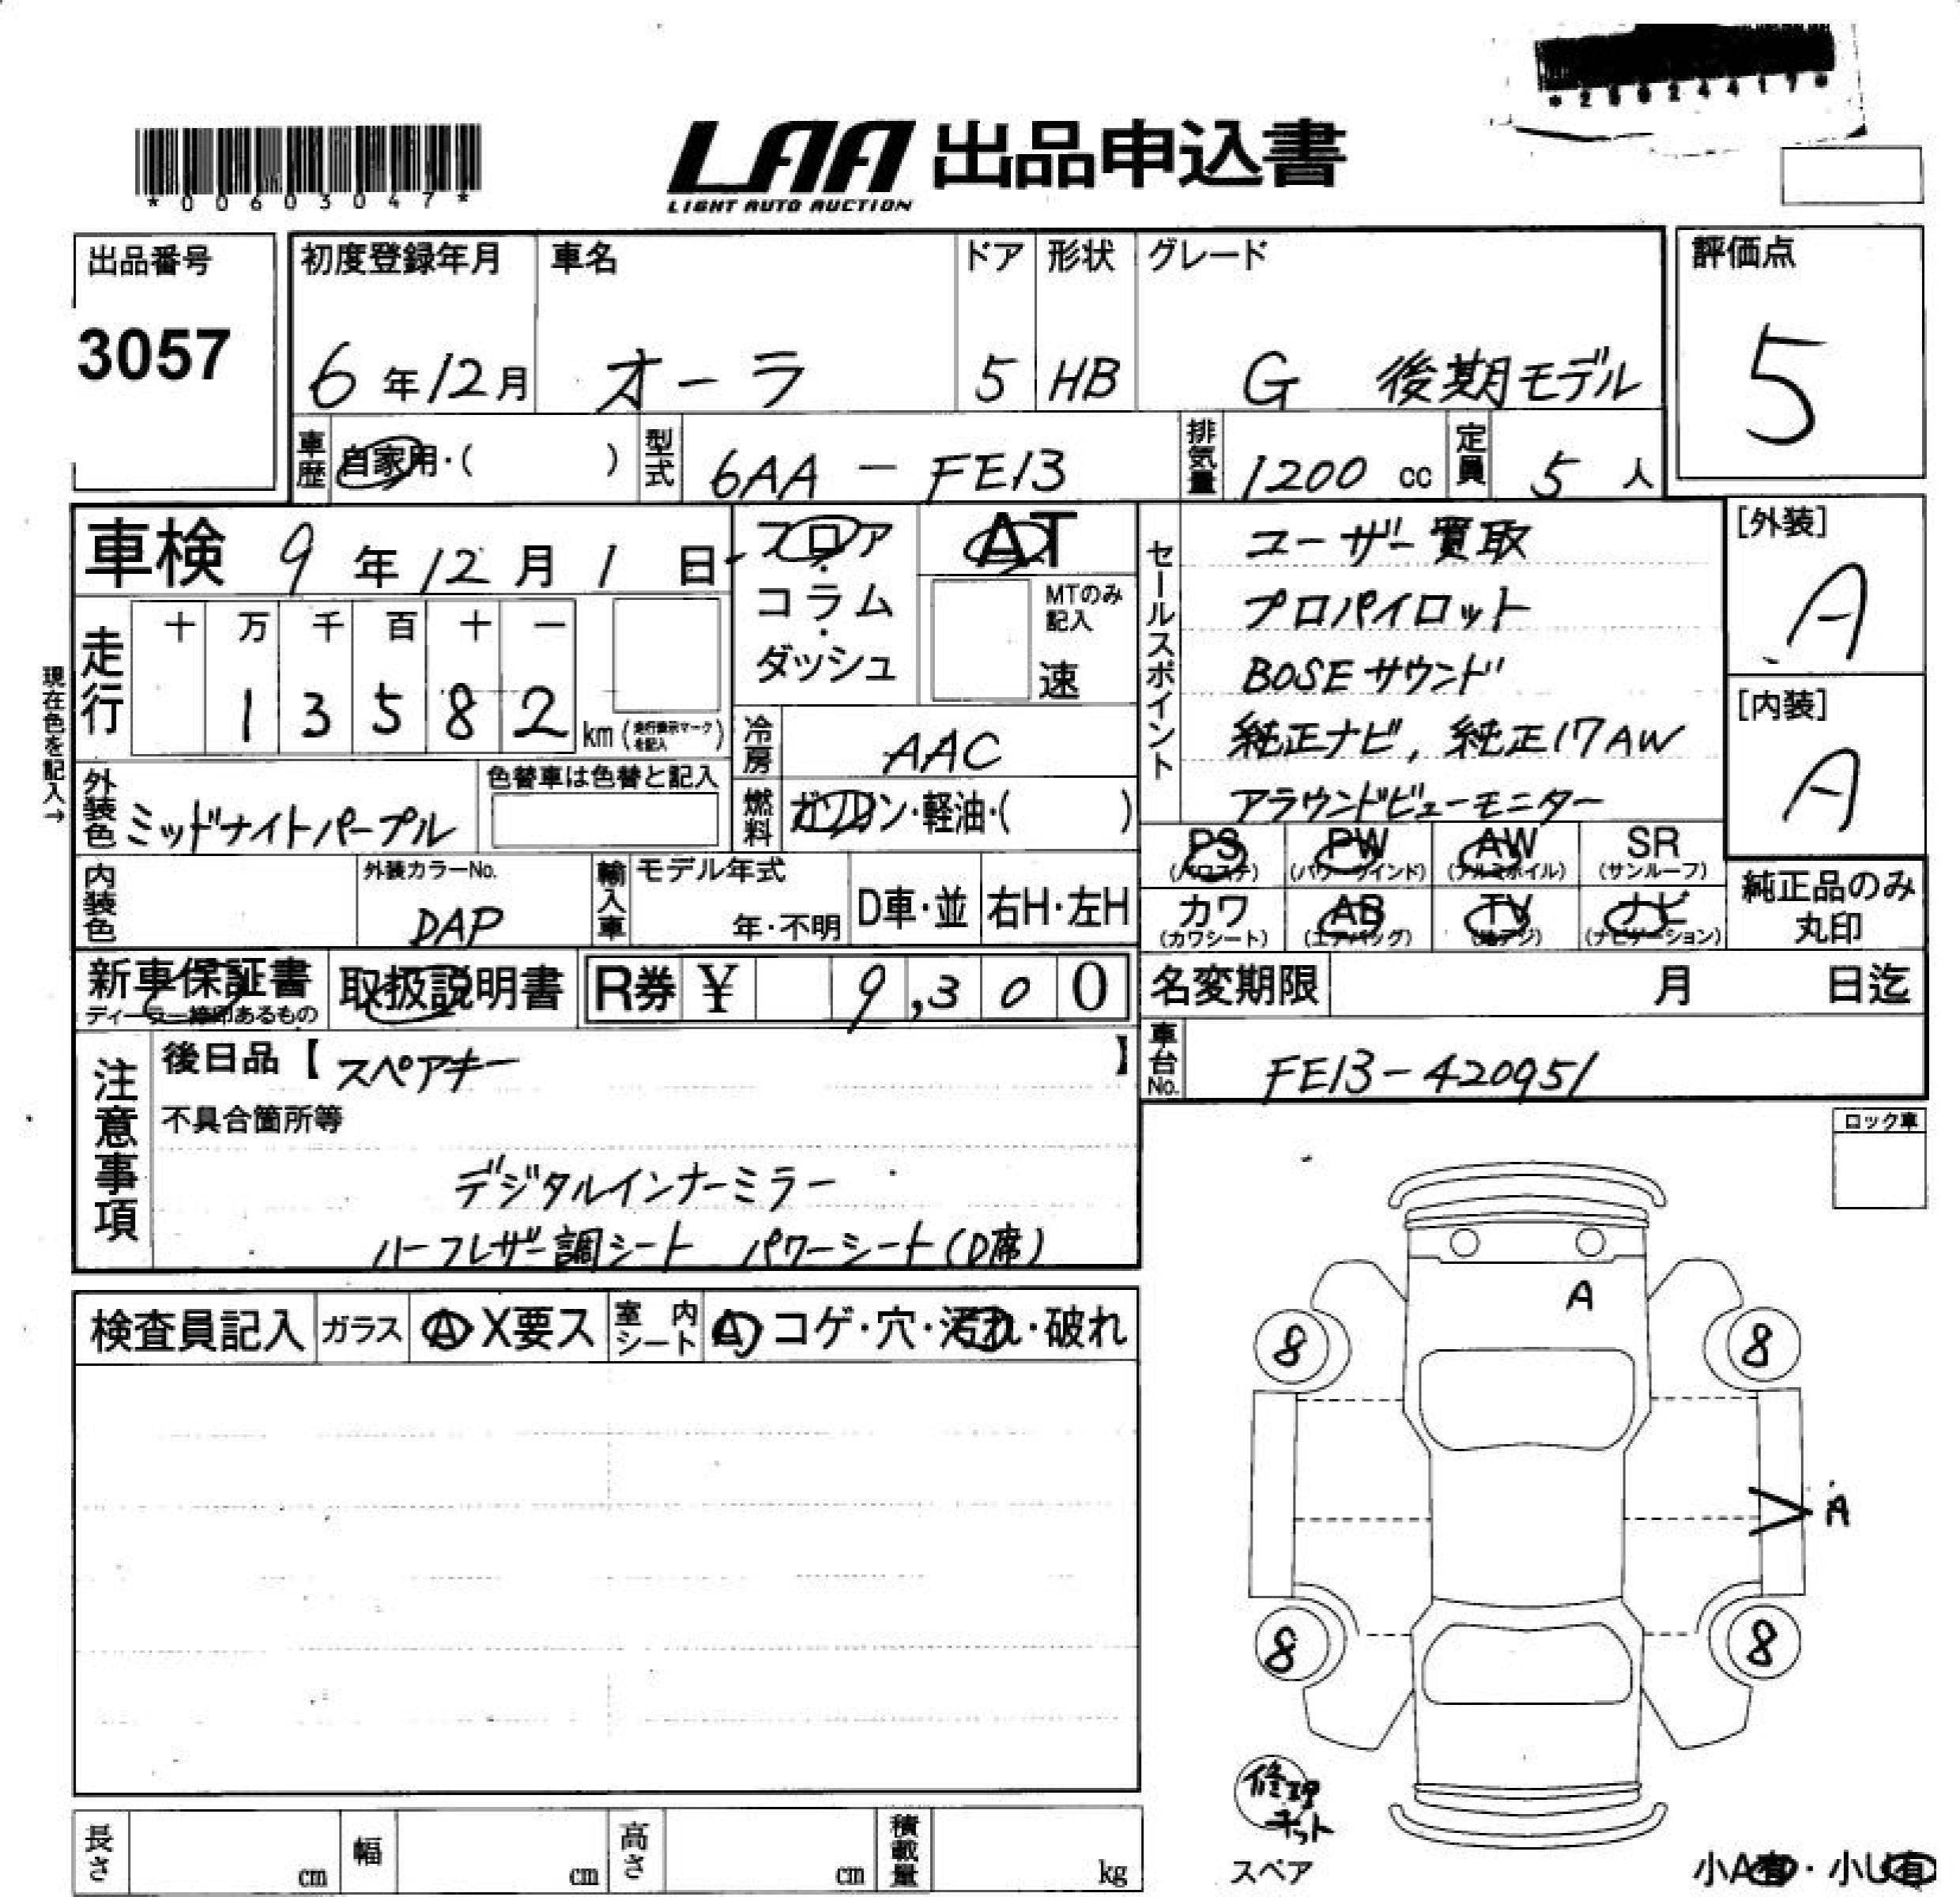 *25024417*
*00603047*
LAA 出品申込書
LIGHT AUTO AUCTION
出品番号
3057
初度登録年月
6年12月
車名
オーラ
ドア
5
形状
HB
グレード
G 後期モデル
評価点
5
車歴 自家用・( )
型式 6AA-FE13
排気量 1200 cc
定員 5 人
車検 9年12月1日
フロア・コラム・ダッシュ
AT
MTのみ記入
速
セールスポイント
ユーザー買取
プロパイロット
BOSEサウンド
純正ナビ, 純正17AW
アラウンドビューモニター
[外装]
A
[内装]
A
現在色を記入→
走行
十 万 千 百 十 一
1 3 5 8 2
km (走行表示マークを記入)
冷房 AAC
外装色 ミッドナイトパープル
色替車は色替と記入
燃料 ガソリン・軽油・( )
内装色
外装カラーNo.
DAP
輸入車
モデル年式
年・不明
D車・並
右H・左H
PS (パワステ)
PW (パワーウインド)
AW (アルミホイル)
SR (サンルーフ)
カワ (カワシート)
AB (エアバッグ)
TV (地デジ)
ナビ (ナビゲーション)
純正品のみ
丸印
新車保証書
ディーラー捺印あるもの
取扱説明書
R券 ¥ 9,300
名変期限 月 日迄
車台No. FE13-420951
注意事項
後日品【スペアキー】
不具合箇所等
デジタルインナーミラー
ハーフレザー調シート パワーシート(D席)
ロック車
検査員記入
ガラス A・X要ス
室内シート A・コゲ・穴・汚れ・破れ
A
8 8
A
8 8
修理キット
スペア
小A有・小U有
長さ cm
幅 cm
高さ cm
積載量 kg